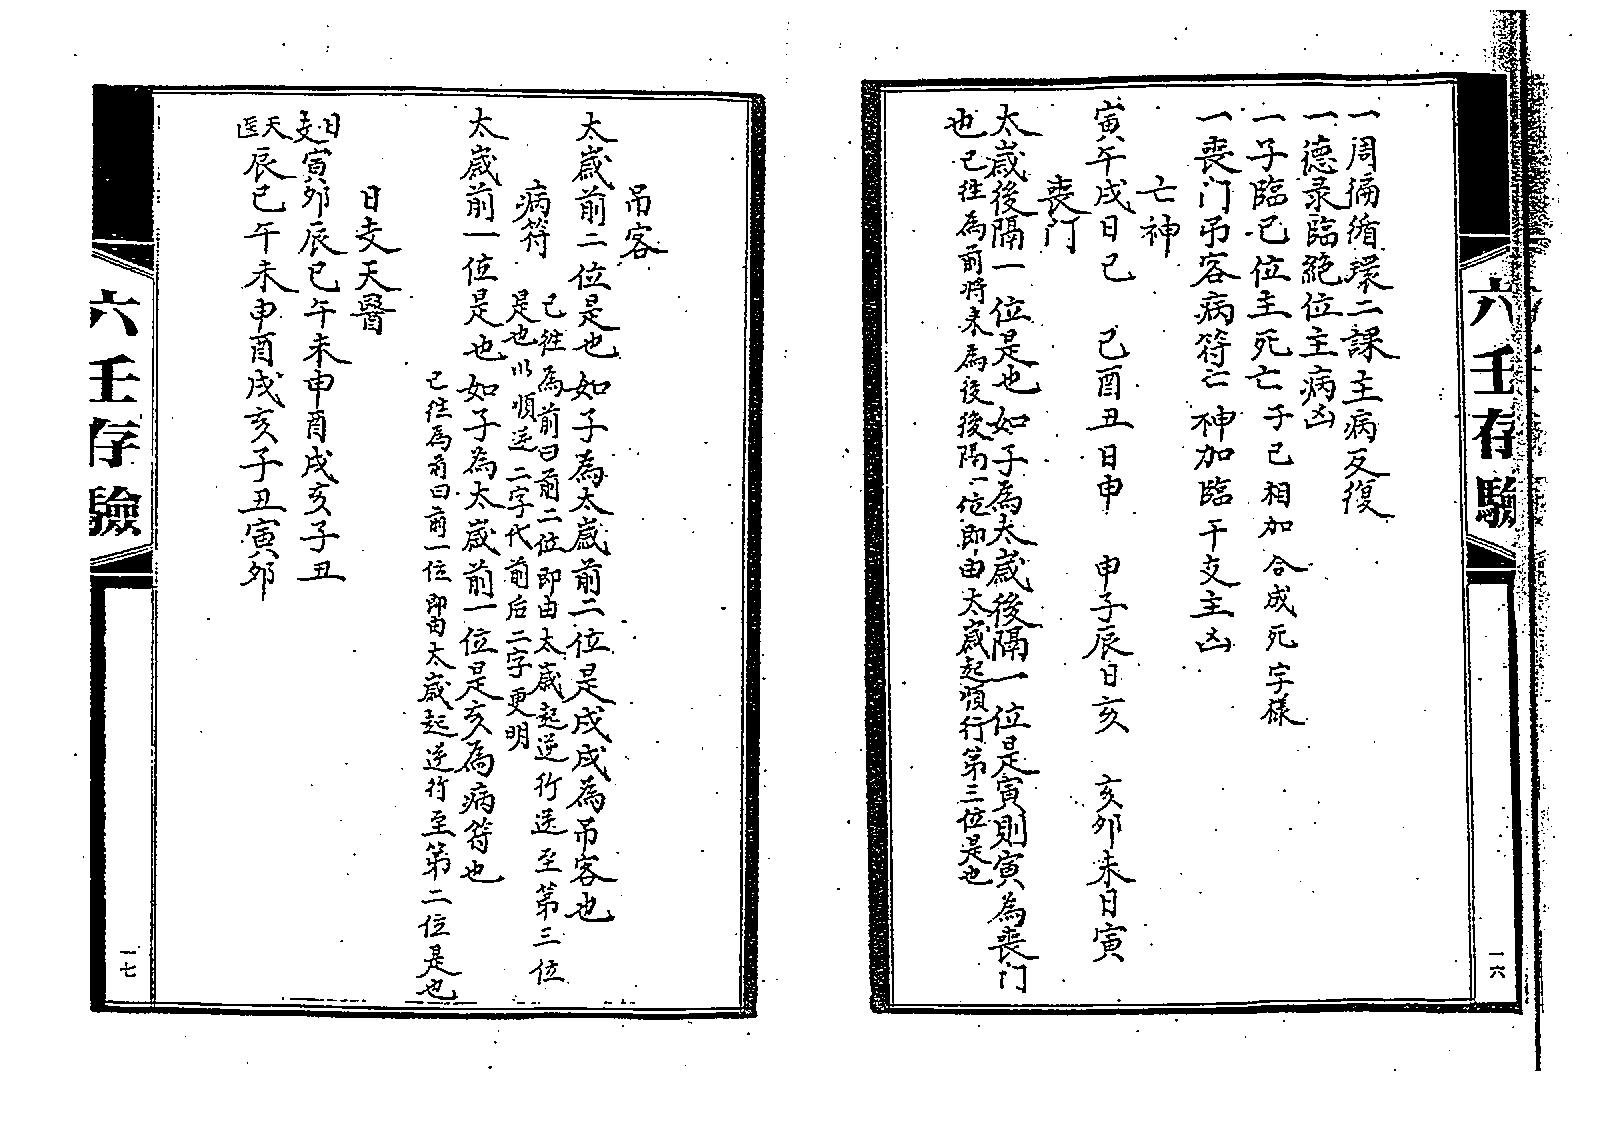 六壬存驗
一六
一周徧循環二課主病反復
一德录臨絶位主病凶
一子臨巳位主死亡子巳相加合成死字樣
一喪门吊客病符亡神加臨干支主凶
亡神
寅午戌日巳　巳酉丑日申　申子辰日亥　亥卯未日寅
喪门
太歲後隔一位是也如子為太歲後隔一位是寅則寅為喪门
也已往為前將来為後後隔一位即由太歲起順行第三位是也
吊客
太歲前二位是也如子為太歲前二位是戌戌為吊客也
已往為前曰前二位即由太歲起逆行逆至第三位
是也以順逆二字代前后二字更明
病符
太歲前一位是也如子為太歲前一位是亥為病符也
已往為前曰前一位即由太歲起逆行至第二位是也
日支天醫
日支寅卯辰巳午未申酉戌亥子丑
天医辰巳午未申酉戌亥子丑寅卯
六壬存驗
一七